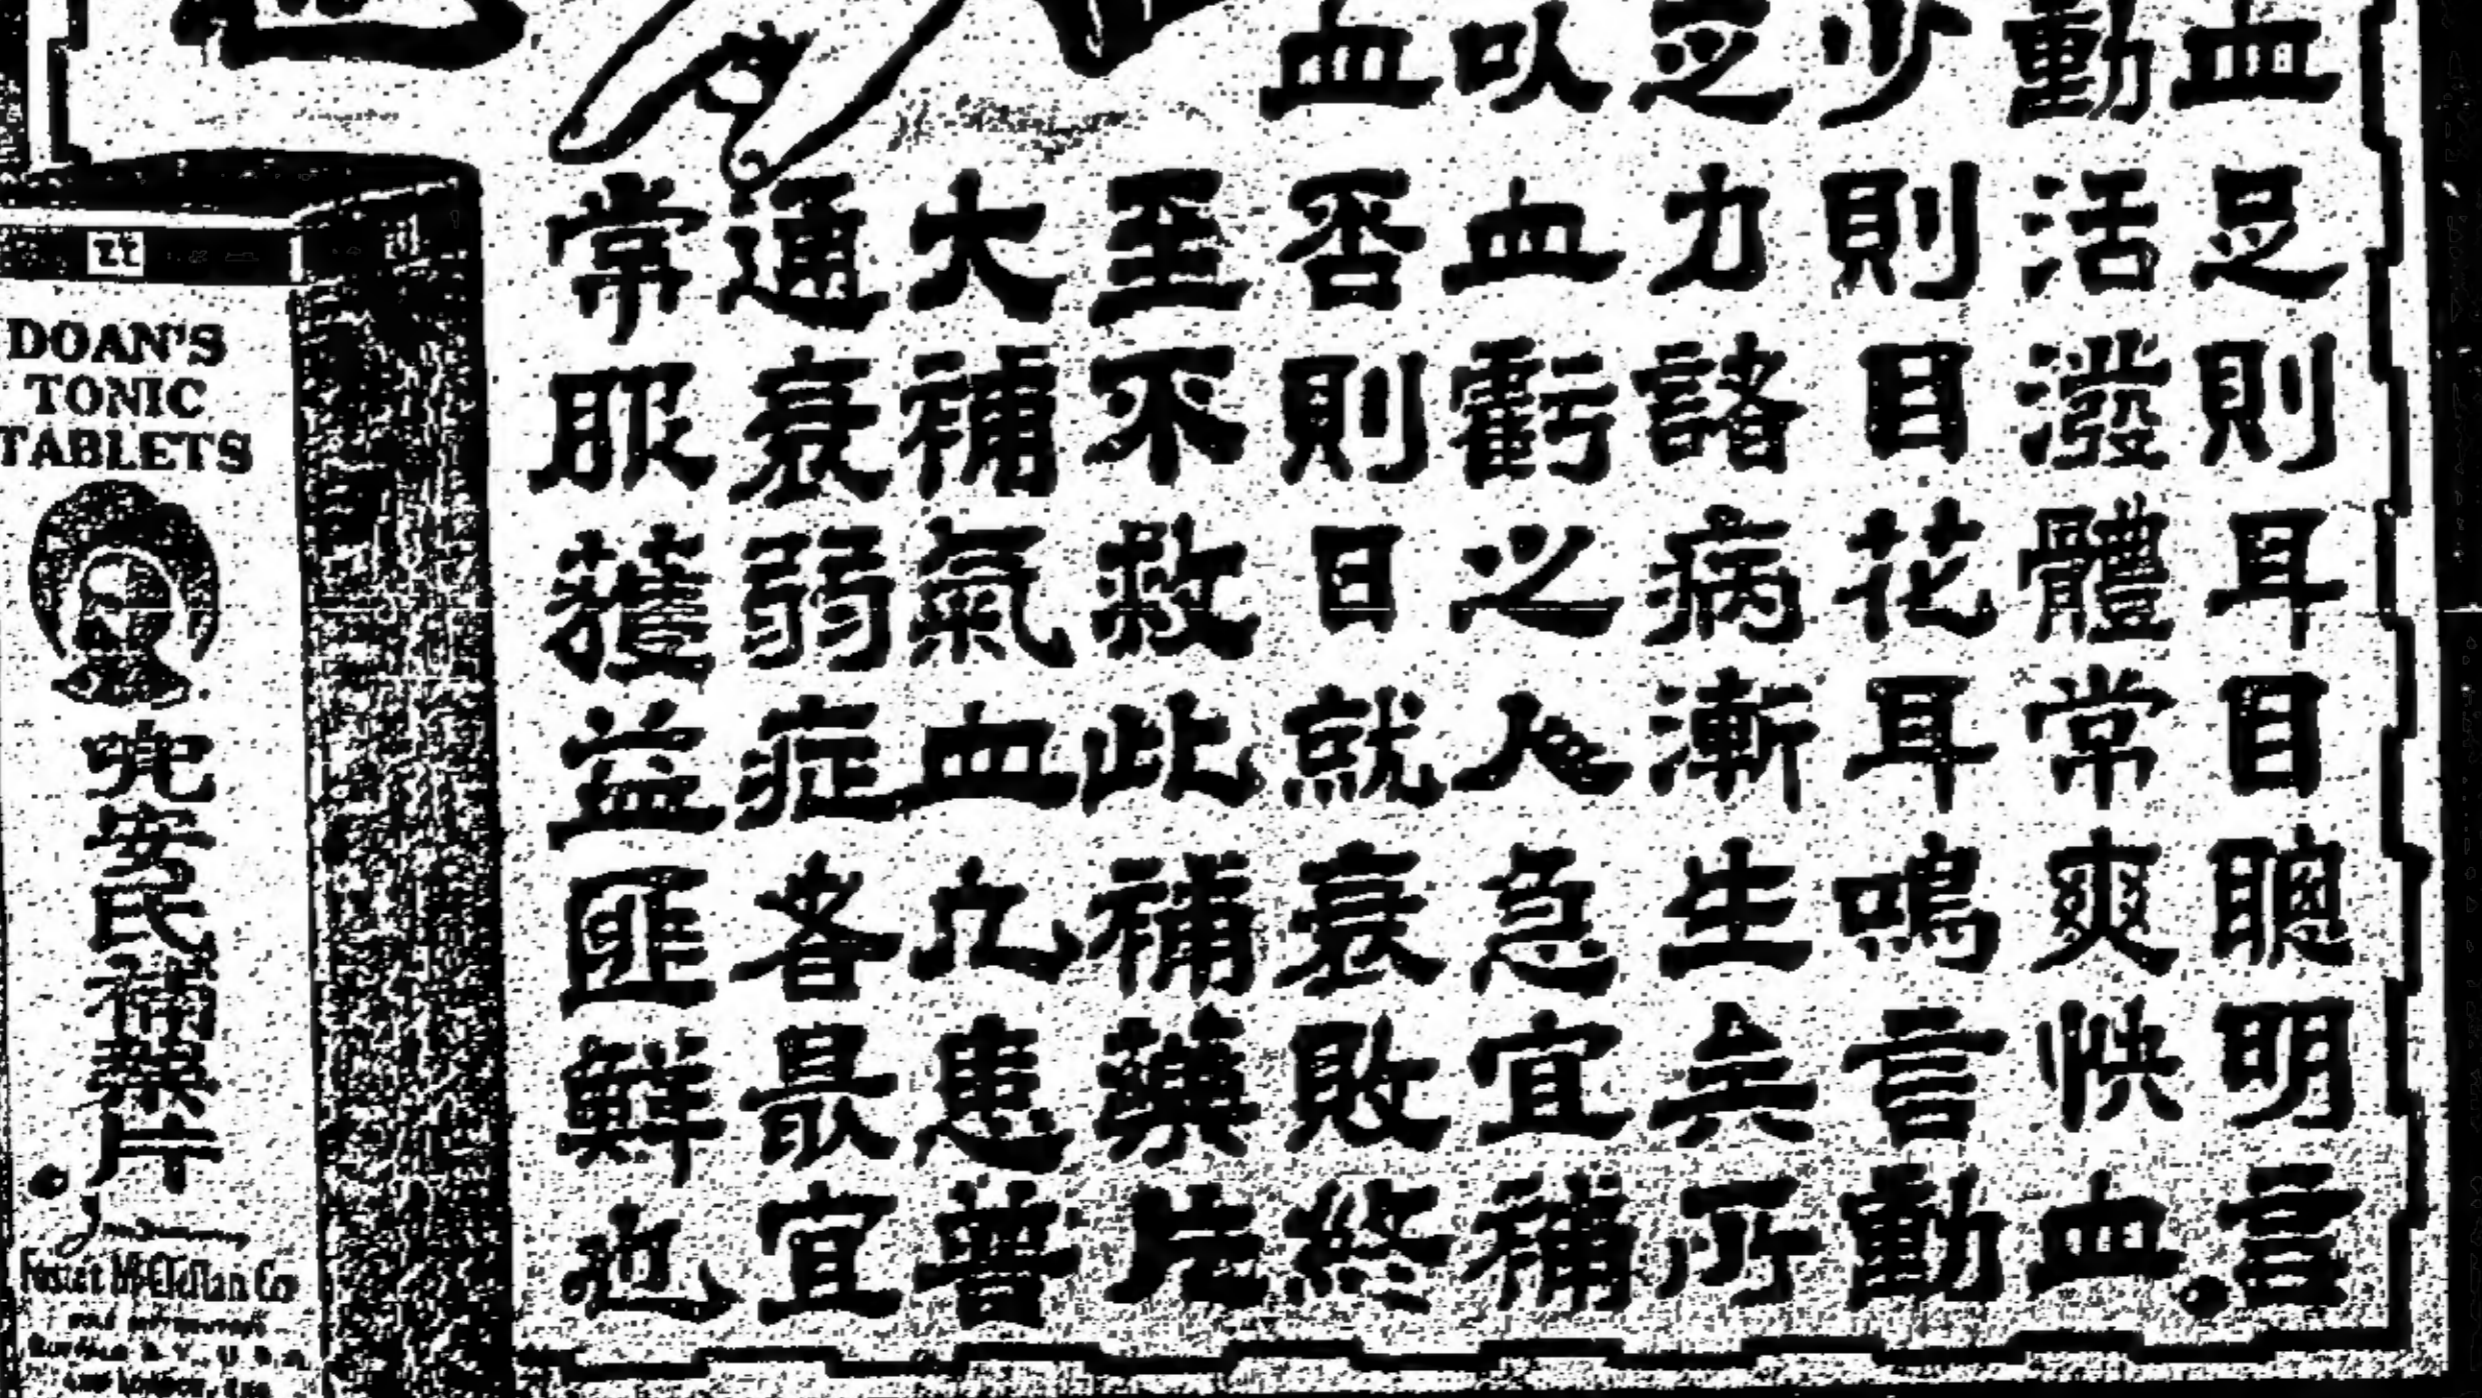 血足則耳目聰明言
動活潑體常爽快血
少則目花耳鳴言動
乏力諸病漸生矣所
以血虧之人急宜補
血否則日就衰敗終
至不救此補藥片
大補氣血凢患普
通衰弱症者最宜
常服獲益匪鮮也
DOAN'S
TONIC
TABLETS
兜安氏補藥片
Foster McClellan Co